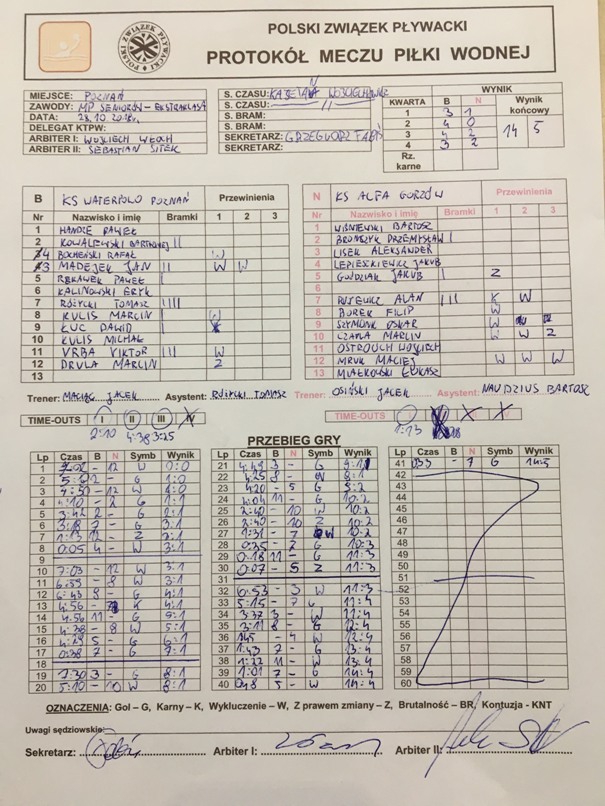 POLSKI ZWIĄZEK PŁYWACKI
POLSKI ZWIĄZEK PŁYWACKI
PROTOKÓŁ MECZU PIŁKI WODNEJ
MIEJSCE: POZNAŃ
ZAWODY: MP SENIORÓW - EKSTRAKLASA
DATA: 28.10.2018r.
DELEGAT KTPW:
ARBITER I: WOJCIECH
ARBITER II: SEBASTIAN SITEK
S. CZASU:
S. CZASU: //
S. BRAM:
S. BRAM:
SEKRETARZ: GRZEGORZ
SEKRETARZ:
WYNIK
KWARTA B N Wynik końcowy
1 3 1
2 4 0
3 4 2
4 3 2
14 5
Rz. karne
B KS WATERPOLO POZNAŃ Przewinienia
Nr Nazwisko i imię Bramki 1 2 3
1 HANDKE PAWEŁ
2 KOWALEWSKI BARTŁOMIEJ II
BOCHEŃSKI RAFAŁ W
MADEJEK JAN II W W
5 RĘKAWEK PAWEŁ I
6 KALINOWSKI ERYK
7 RÓŻYCKI TOMASZ IIII
8 KULIS MARCIN I W
9 ŁUC DAWID
10 KULIS MICHAŁ
11 VRBA VIKTOR III W
12 DRVOLA MARCIN Z
13
N KS ALFA GORZÓW Przewinienia
Nr Nazwisko i imię Bramki 1 2 3
1 WIŚNIEWSKI BARTOSZ
2 PRZEMYSŁAW I
3 LISEK ALEKSANDER
4 JAKUB
5 GOŹDZIAK JAKUB I Z
7 ALAN III K W
8 BOREK FILIP W
9 SZYMONIK OSKAR W
10 CZAPLA MARCIN W W Z
11 OSTROUCH WOJCIECH
12 MRUK MACIEJ W W W
13 MIAŁKOWSKI ŁUKASZ
Trener: MACIĄG JACEK Asystent: RÓŻYCKI TOMASZ
Trener: OSIŃSKI JACEK Asystent: NAUDZIUS BARTOSZ
TIME-OUTS I II III IV
2:10 4:38 3:25
TIME-OUTS
1:13
PRZEBIEG GRY
Lp Czas B N Symb Wynik
Lp Czas B N Symb Wynik
Lp Czas B N Symb Wynik
1 7:02 - 12 W 0:0
2 5:02 2 - G 1:0
3 4:50 - 12 W 1:0
4 4:10 - 2 G 1:1
5 3:42 2 - G 2:1
6 3:18 7 - G 3:1
7 1:13 12 - Z 3:1
8 0:05 4 - W 3:1
9
10 7:03 - 12 W 3:1
11 6:55 - 8 W 3:1
12 6:43 8 - G 4:1
13 4:56 - 7 K 4:1
14 4:56 11 - G 5:1
15 4:38 - 8 W 5:1
16 4:29 5 - G 6:1
17 0:38 7 - G 7:1
18
19 7:30 3 - G 8:1
20 5:10 - 10 W 8:1
21 4:45 3 - G 9:1
22 4:25 8 - W 9:1
23 4:20 - 5 G 9:2
24 4:04 11 - G 10:2
25 2:40 - 10 W 10:2
26 2:40 - 10 Z 10:2
27 1:31 - 7 W 10:2
28 0:25 - 7 G 10:3
29 0:18 11 - G 11:3
30 0:07 - 5 Z 11:3
31
32 6:53 - 3 W 11:3
33 5:15 - 7 G 11:4
34 3:37 3 - W 11:4
35 3:11 8 - G 12:4
36 1:45 - 4 W 12:4
37 1:43 7 - G 13:4
38 1:22 11 - W 13:4
39 1:01 7 - G 14:4
40 0:48 5 - W 14:4
41 0:33 - 7 G 14:5
42
43
44
45
46
47
48
49
50
51
52
53
54
55
56
57
58
59
60
OZNACZENIA: Gol – G, Karny – K, Wykluczenie – W, Z prawem zmiany – Z, Brutalność – BR, Kontuzja - KNT
Uwagi sędziowskie:
Sekretarz: Arbiter I: Arbiter II: